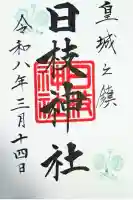 皇城之鎮
日枝神社
令和八年三月十四日